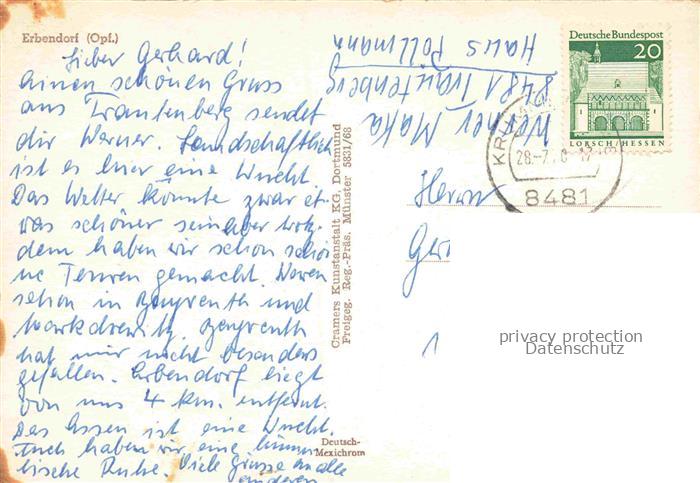 Erbendorf (Opf.)
Lieber Gerhard!
Einen schönen Gruss
aus Trautenberg sendet
dir Werner. Landschaftlich
ist es hier eine Wucht.
Das Wetter könnte zwar et-
was schöner sein aber trotz-
dem haben wir schon schö-
ne Touren gemacht. Waren
schon in Bayreuth und
Marktredwitz. Bayreuth
hat mir nicht besonders
gefallen. Erbendorf liegt
von uns 4 km. entfernt.
Das Essen ist eine Wucht.
Auch haben wir eine himm-
lische Ruhe. Viele Grüsse an alle
anderen
Deutsch-
Mexichrom
Cramers Kunstanstalt KG, Dortmund
Freigeg. Reg.-Präs. Münster 5831/68
Werner
8481 Trautenberg
Haus Pöllmann
Deutsche Bundespost
20
LORSCH/HESSEN
28.-7.
8481
Herrn
Ger
privacy protection
Datenschutz